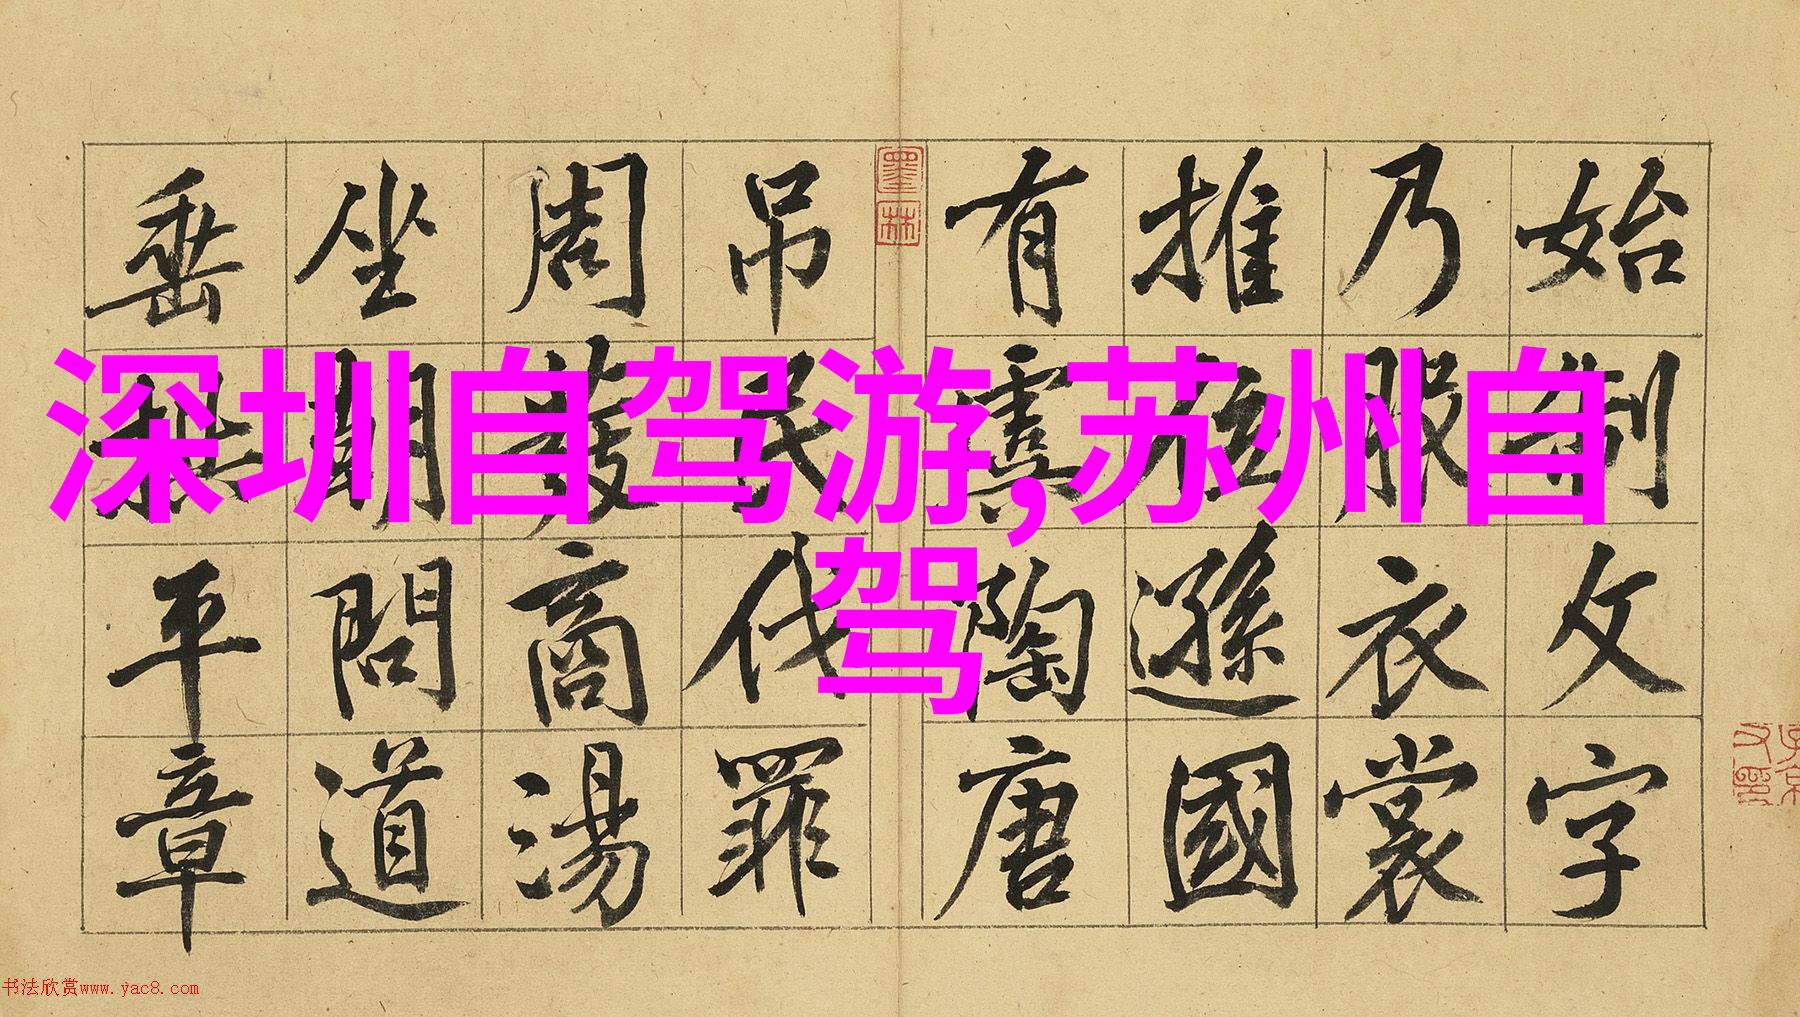 深圳自驾游,苏州自
驾
始制文字
乃服衣裳
推位遜國
有虞陶唐
墨林
吊民伐罪
周發商湯
坐朝問道
垂拱平章
书法欣赏www.yac8.com